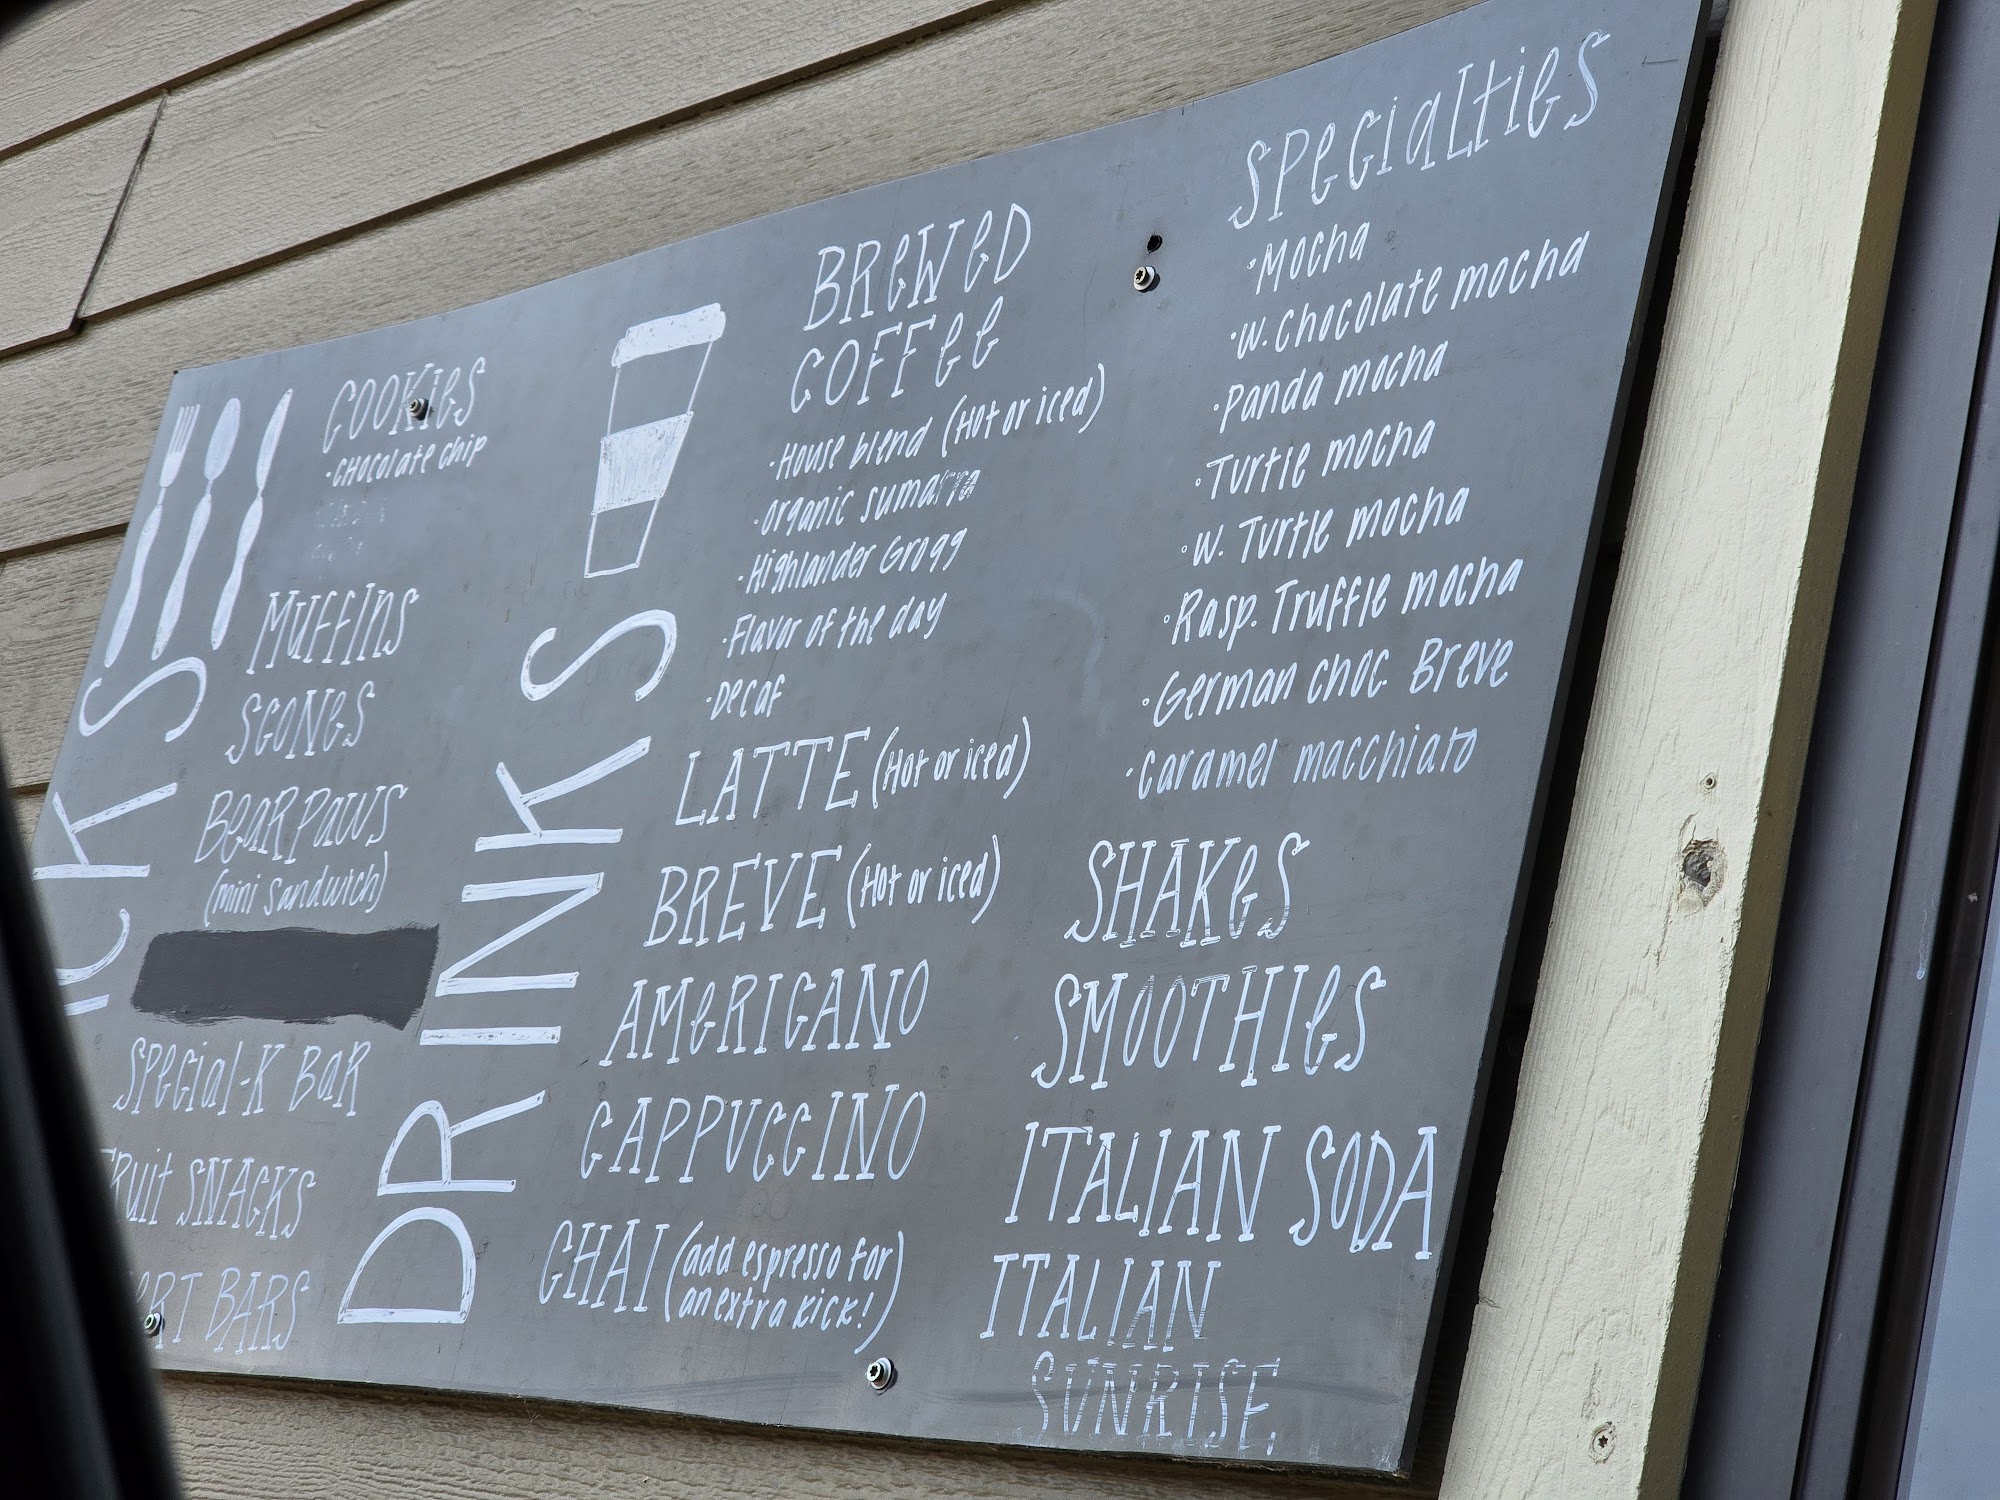 COOKIES
• CHocolate chip
MUFFINS
SCONES
BEAR PAWS
(mini sandwich)
SPECIAL-K BAR
FRUIT SNACKS
BARS
DRINKS
BREWED
COFFEE
• House blend (Hot or iced)
• organic sumatra
• Highlander Grogg
• Flavor of the day
• Decaf
LATTE (Hot or iced)
BREVE (Hot or iced)
AMERICANO
CAPPUCCINO
CHAI (add espresso for
an extra kick!)
SPECIALTIES
• Mocha
• W. Chocolate mocha
• Panda mocha
• Turtle mocha
• W. Turtle mocha
• Rasp. Truffle mocha
• German choc. Breve
• Caramel macchiato
SHAKES
SMOOTHIES
ITALIAN SODA
ITALIAN
SUNRISE